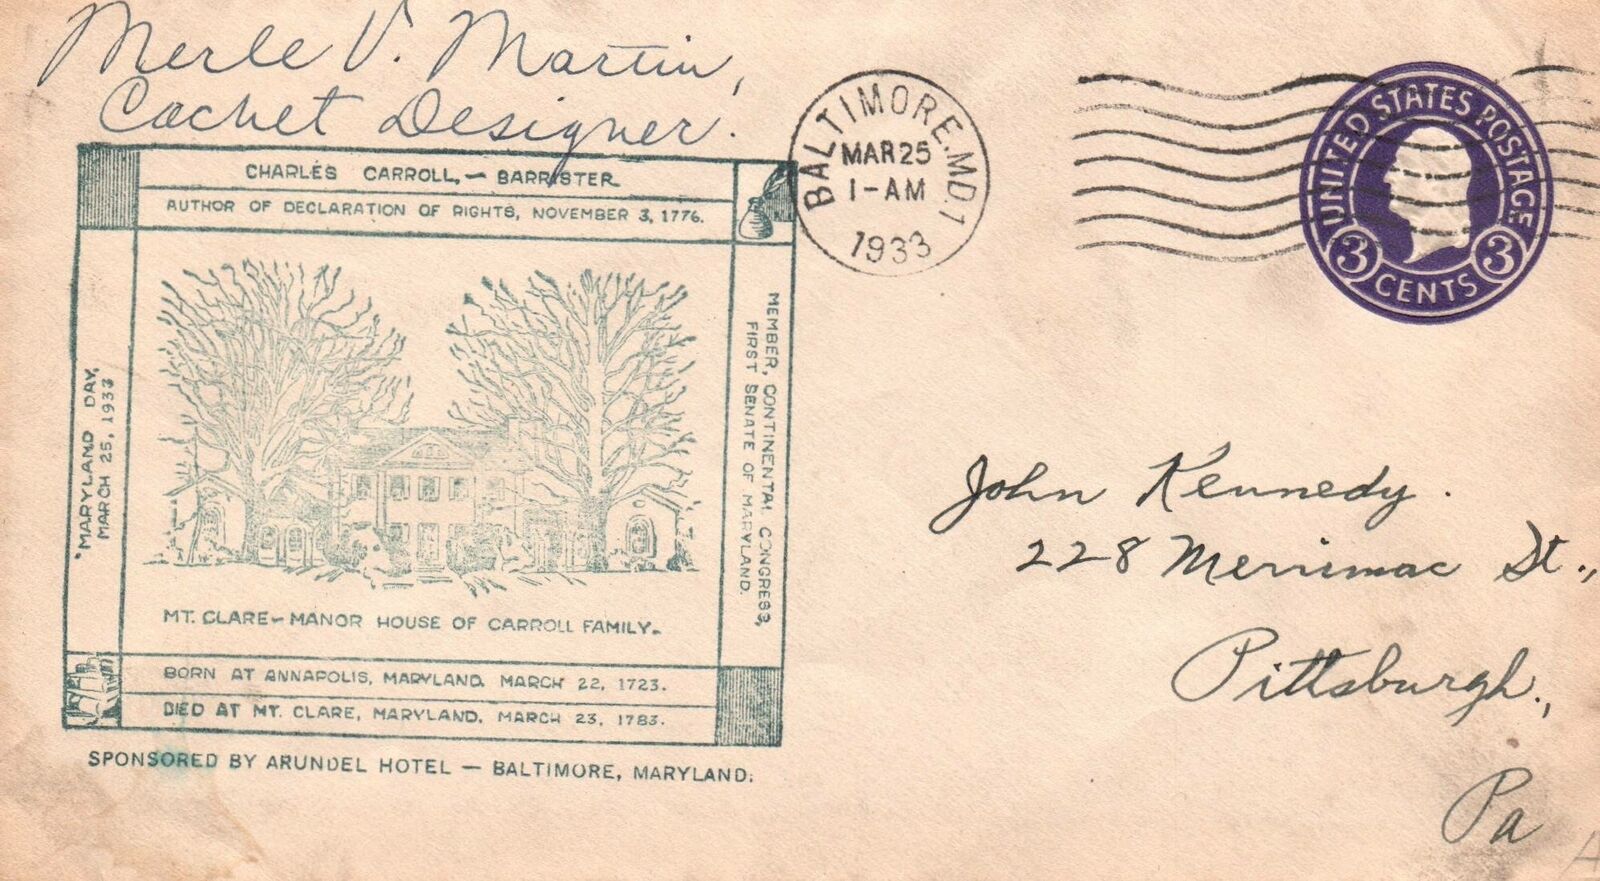 Merle V. Martin,
Cachet Designer.
CHARLES CARROLL, — BARRISTER
AUTHOR OF DECLARATION OF RIGHTS, NOVEMBER 3, 1776.
"MARYLAND DAY,
MARCH 25, 1933
MEMBER, CONTINENTAL CONGRESS,
FIRST SENATE OF MARYLAND.
MT. CLARE — MANOR HOUSE OF CARROLL FAMILY.
BORN AT ANNAPOLIS, MARYLAND. MARCH 22, 1723.
DIED AT MT. CLARE, MARYLAND. MARCH 23, 1783.
SPONSORED BY ARUNDEL HOTEL — BALTIMORE, MARYLAND.
BALTIMORE, MD. 1
MAR 25
1-AM
1933
UNITED STATES POSTAGE
3 CENTS 3
John Kennedy.
228 Merrimac St.,
Pittsburgh.,
Pa